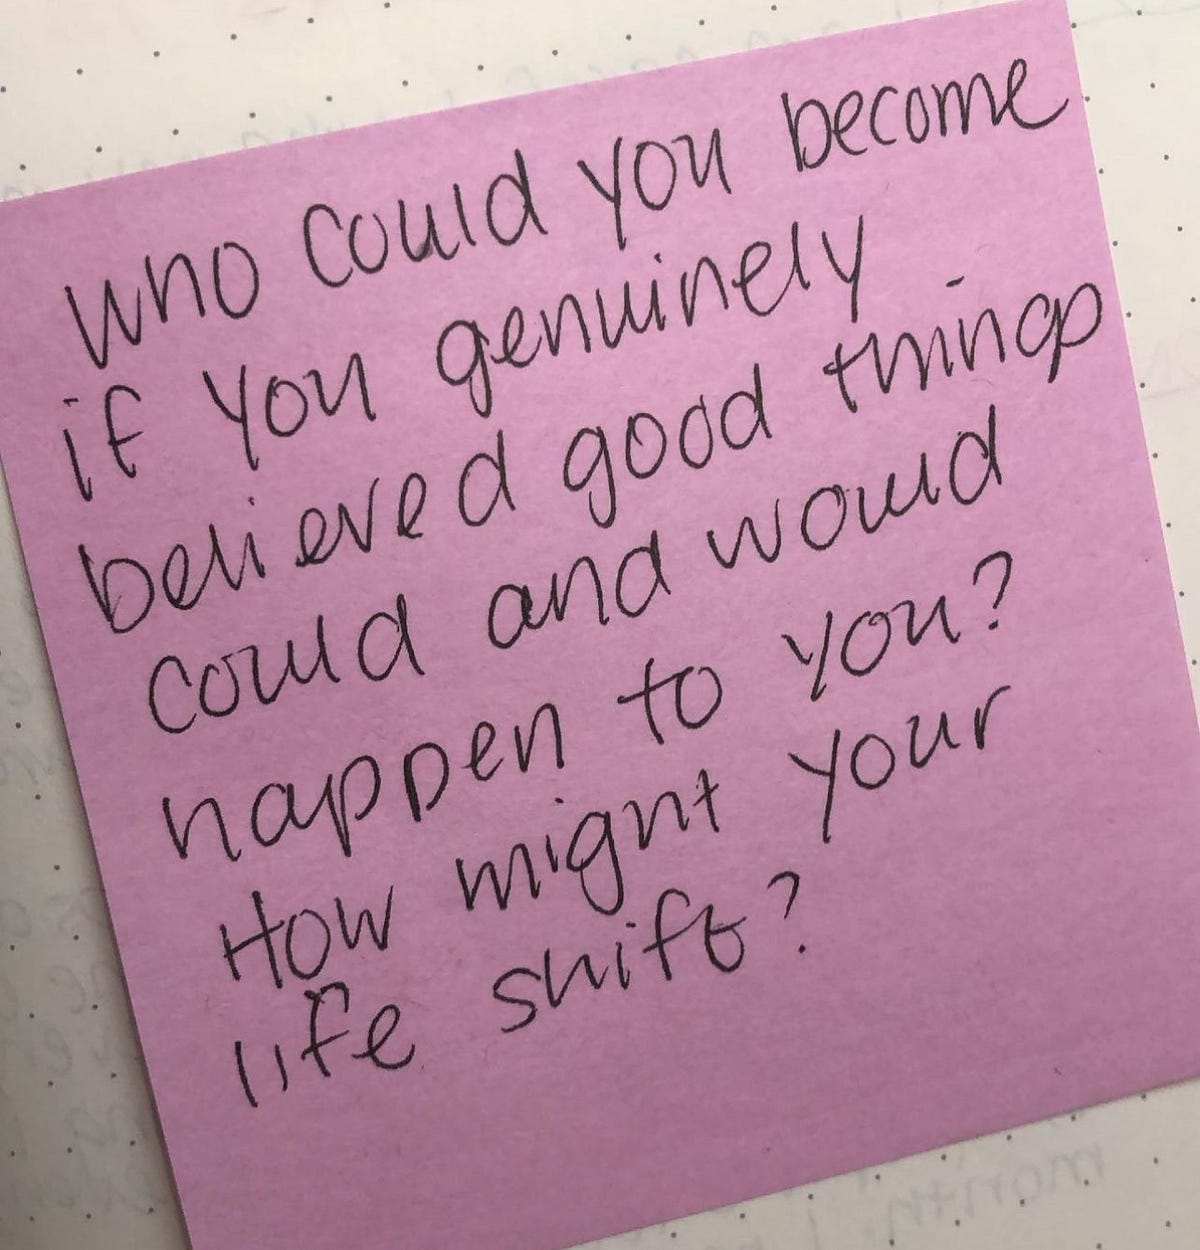 who could you become
if you genuinely
believed good things
could and would
happen to you?
How might your
life shift?
month.